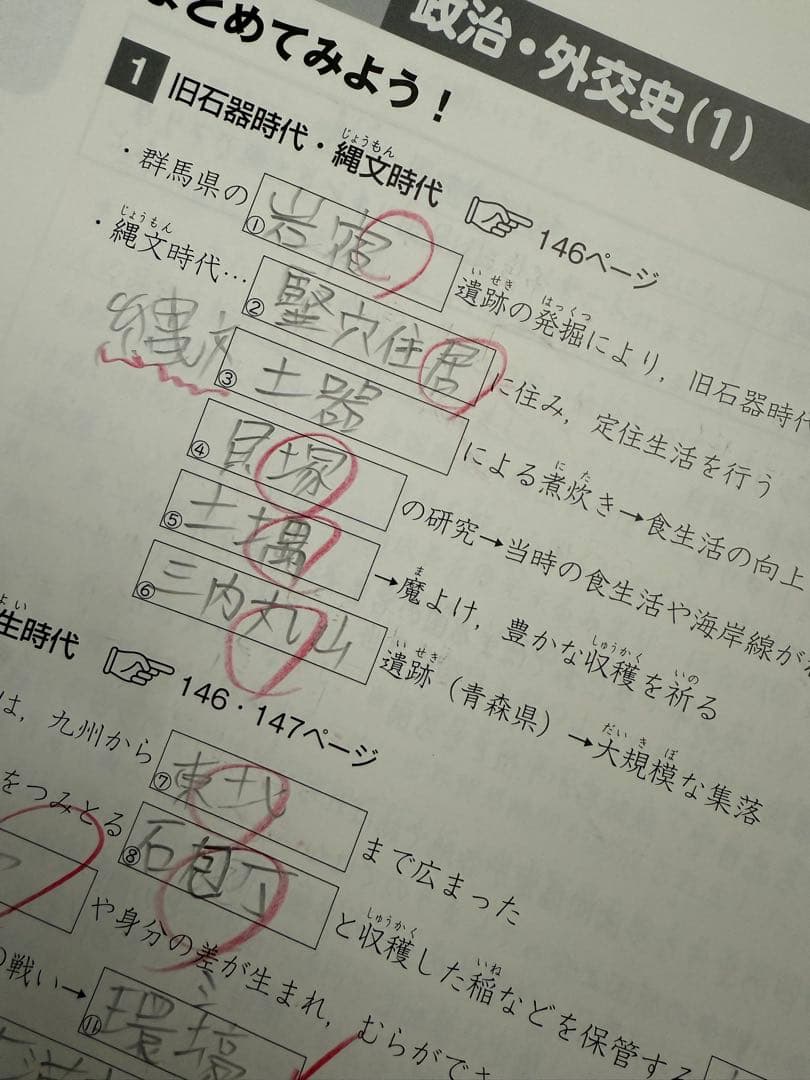 まとめてみよう!
政治・外交史(1)
1 旧石器時代・縄文時代 146ページ
じょうもん
・群馬県の ①岩宿 遺跡の発掘により,旧石器時代
いせき はっくつ
・縄文時代… ②竪穴住居 に住み,定住生活を行う
じょうもん
縄文 ③土器 による煮炊き→食生活の向上
にた
④貝塚 の研究→当時の食生活や海岸線が
⑤土偶 →魔よけ,豊かな収穫を祈る
ま しゅうかく いの
⑥三内丸山 遺跡(青森県)→大規模な集落
いせき だいきぼ
生時代 146・147ページ
よい
は,九州から ⑦東北 まで広まった
をつみとる ⑧石包丁 と収穫した稲などを保管する
しゅうかく いね
や身分の差が生まれ,むらができ
の戦い→ ⑪環境